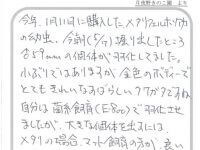 月夜野きのこ園 より
今年、1月11日に購入したメタリフェルホソアカ
の幼虫、今朝(5/7)掘り出したところ
♂59mmの個体が羽化してました。
小ぶりではありますが金色のボディーで
とてもきれいなすばらしいクワガタですね
自分は菌糸飼育(E-800)で羽化させ
ましたが、大きな個体を出すには
メタリの場合、マット飼育の方が、良い